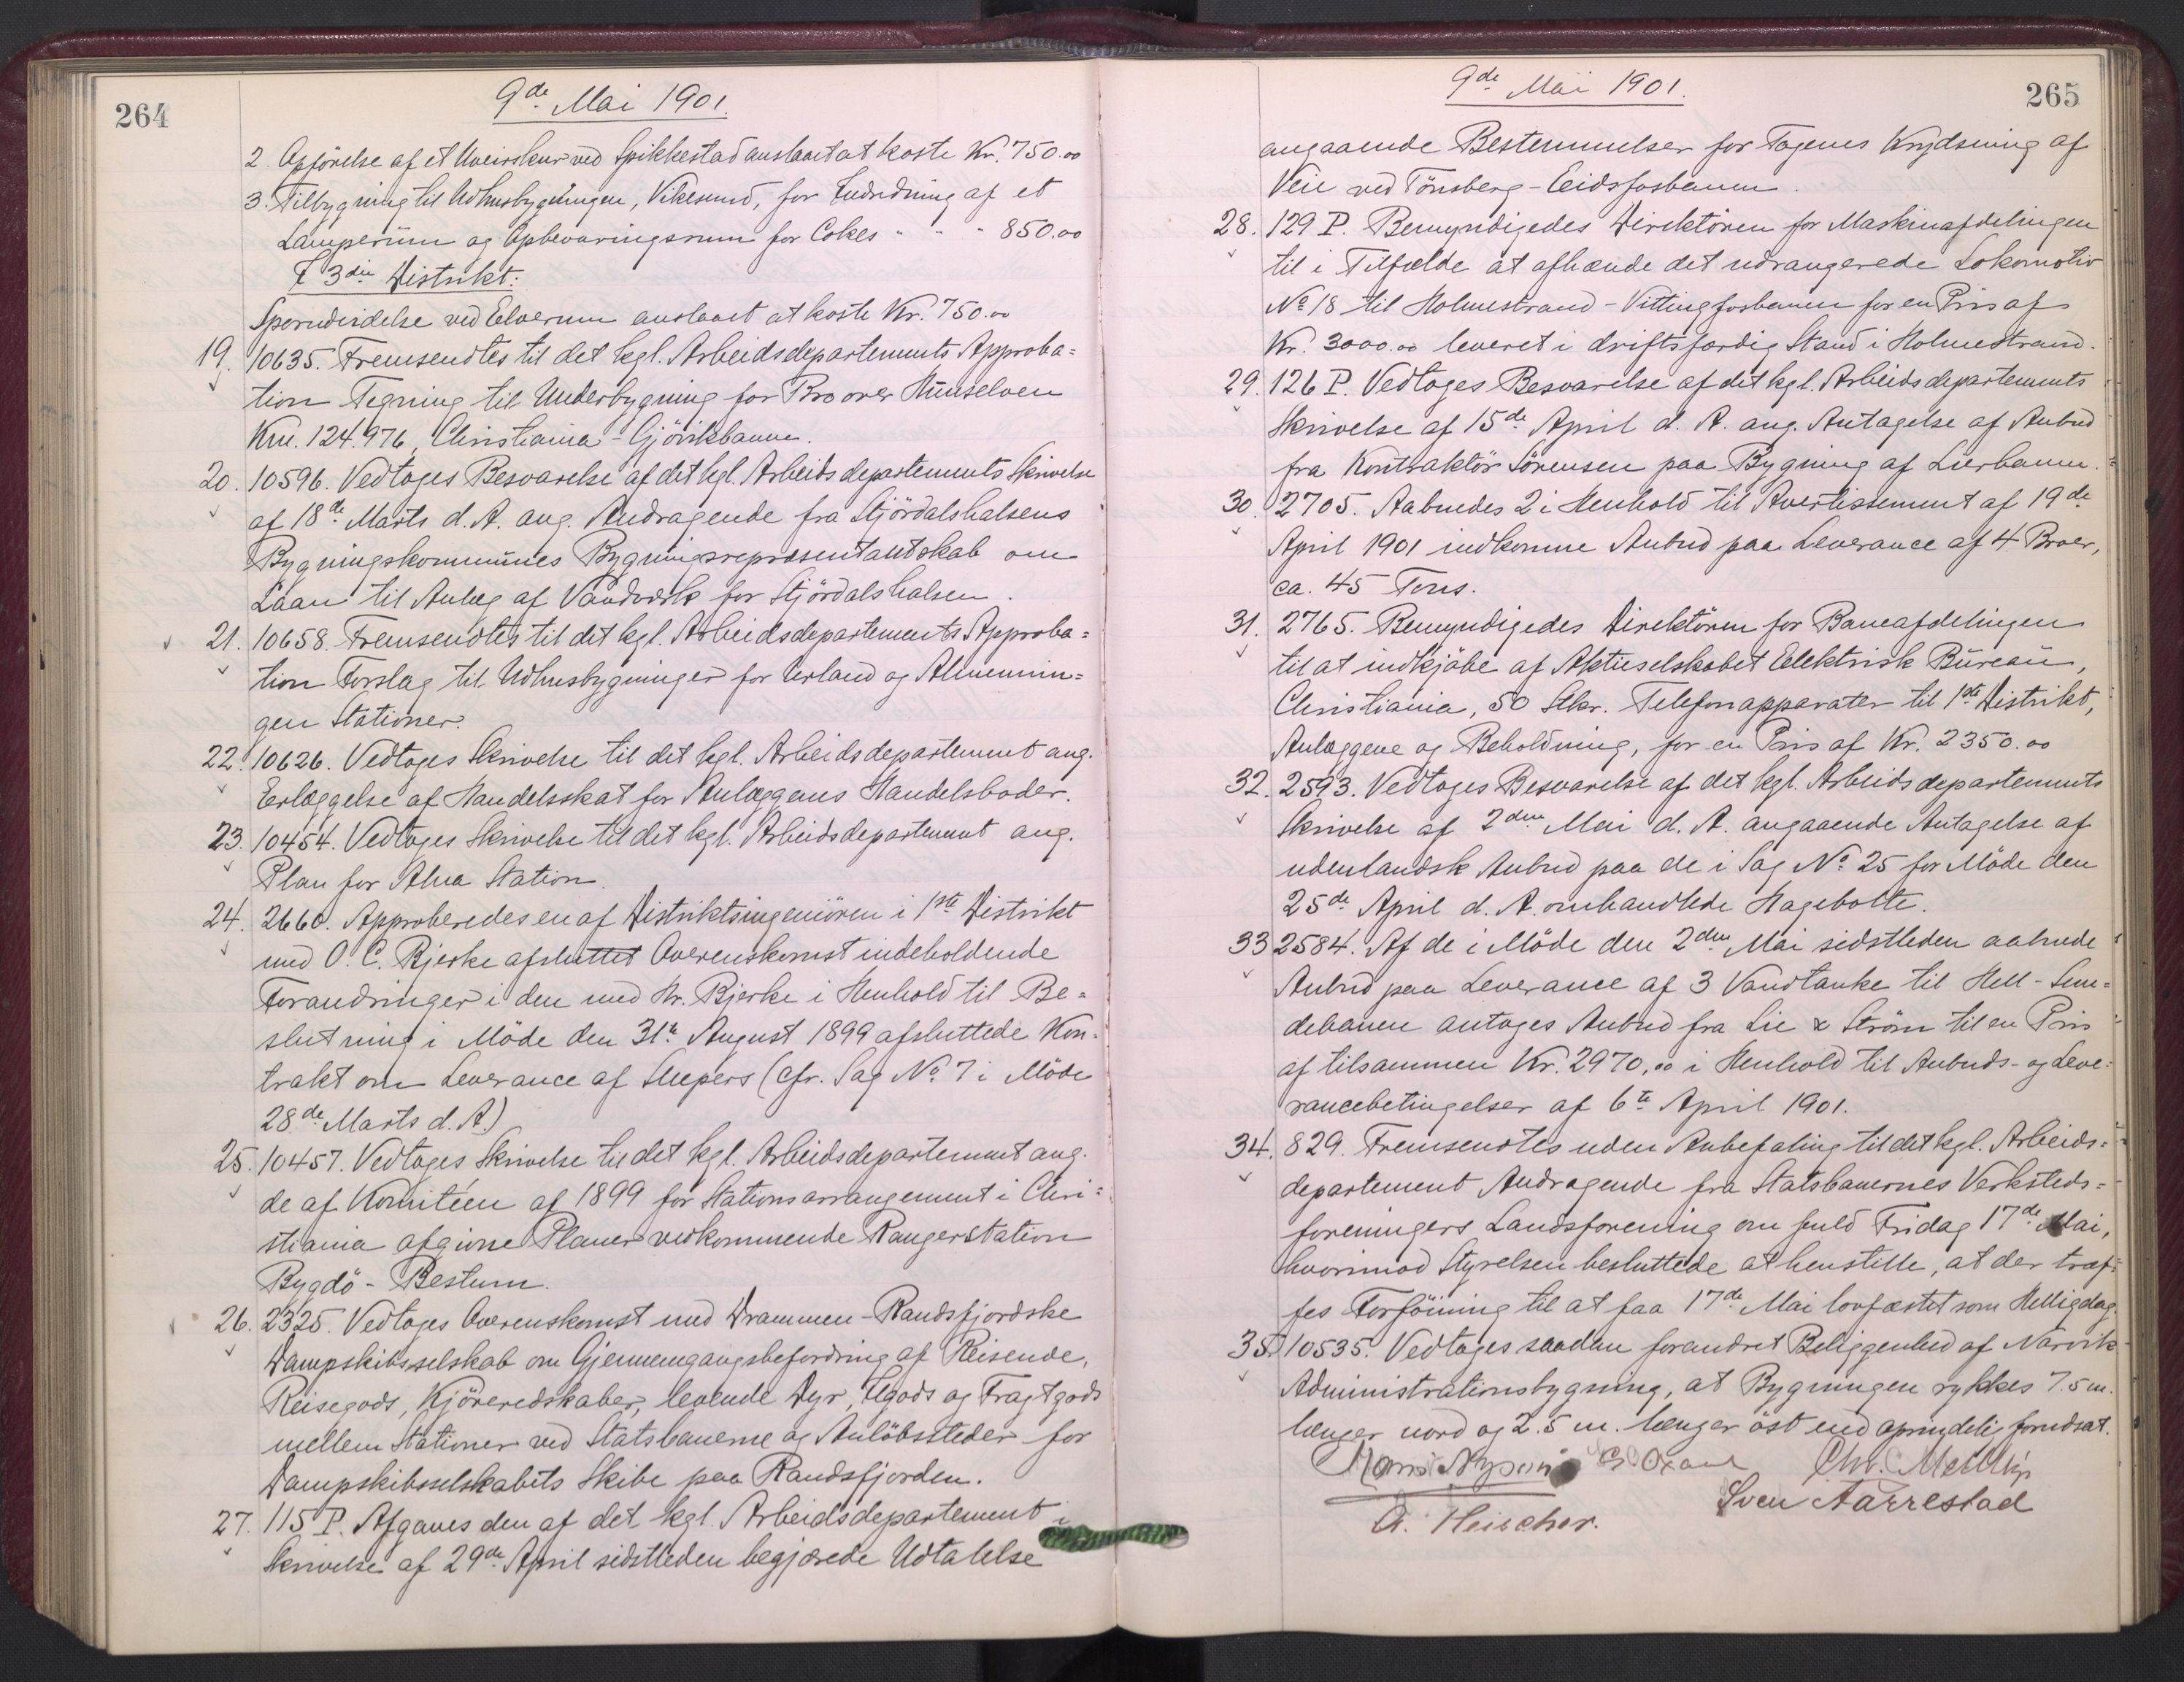 264
9de Mai 1901.
2. Opførelse af et Uveirskur ved Spikkestad anslaaet at koste Kr. 750.00
3. Tilbygning til Udhusbygningen, Vikesund, for Indredning af et
Lamperum og Opbevaringsrum for Cokes " " " 850.00
I 3die Distrikt:
Sporudvidelse ved Elverum anslaaet at koste Kr. 750.00
19. 10635. Fremsendtes til det kgl. Arbeidsdepartements Approba=
tion Tegning til Underbygning for Bro over Hunselven
Km. 124.976, Christiania-Gjövikbanen.
20. 10596. Vedtoges Besvarelse af det kgl. Arbeidsdepartements Skrivelse
af 18de Marts d. A. ang. Andragende fra Stjördalshalsens
Bygningskommunes Bygningsrepræsentantskab om
Laan til Anlæg af Vandværk for Stjördalshalsen.
21. 10658. Fremsendtes til det kgl. Arbeidsdepartements Approba=
tion Forslag til Udhusbygninger for Urland og Almennin=
gen Stationer.
22. 10626. Vedtoges Skrivelse til det kgl. Arbeidsdepartement ang.
Erlæggelse af Handelsskat for Anlæggenes Handelsboder.
23. 10454. Vedtoges Skrivelse til det kgl. Arbeidsdepartement ang.
Plan for Alna Station.
24. 2660. Approberedes en af Distriktsingeniören i 1ste Distrikt
med O. C. Bjerke afsluttet Overenskomst indeholdende
Forandringer i den med Hr. Bjerke i Henhold til Be=
slutning i Möde den 31te August 1899 afsluttede Kon=
trakt om Leverance af Sleepers (cfr. Sag No. 7 i Möde
28de Marts d. A.)
25. 10457. Vedtoges Skrivelse til det kgl. Arbeidsdepartement ang.
de af Komitéen af 1899 for Stationsarrangement i Chri=
stiania afgivne Planer vedkommende Rangerstation
Bygdö-Bestum.
26. 2325. Vedtoges Overenskomst med Drammen-Randsfjordske
Dampskibsselskab om Gjennemgangsbefordring af Reisende,
Reisegods, Kjöreredskaber, levende Dyr, Ilgods og Fragtgods
mellem Stationer ved Statsbanerne og Anlöbssteder for
Dampskibsselskabets Skibe paa Randsfjorden.
27. 115 P. Afgaves den af det kgl. Arbeidsdepartement i
Skrivelse af 29de April sidstleden begjærede Udtalelse
265
9de Mai 1901.
angaaende Bestemmelser for Togenes Krydsning af
Veie ved Tönsberg-Eidsfosbanen.
28. 129 P. Bemyndigedes Direktören for Maskinafdelingen
til i Tilfælde at afhænde det udrangerede Lokomotiv
No 18 til Holmestrand-Vittingfosbanen for en Pris af
Kr. 3000.00 leveret i driftsfærdig Stand i Holmestrand.
29. 126 P. Vedtoges Besvarelse af det kgl. Arbeidsdepartements
Skrivelse af 15de April d. A. ang. Antagelse af Anbud
fra Kontraktör Sörensen paa Bygning af Lierbanen.
30. 2705. Aabnedes 2 i Henhold til Avertissement af 19de
April 1901 indkomne Anbud paa Leverance af 4 Broer,
ca. 45 Tons.
31. 2765. Bemyndigedes Direktören for Baneafdelingen
til at indkjöbe af Aktieselskabet Elektrisk Büreau,
Christiania, 50 Stkr. Telefonapparater til 1ste Distrikt,
Anlæggene og Beholdning, for en Pris af Kr. 2350.00
32. 2593. Vedtoges Besvarelse af det kgl. Arbeidsdepartements
Skrivelse af 2den Mai d. A. angaaende Antagelse af
udenlandsk Anbud paa de i Sag No. 25 for Möde den
25de April d. A. omhandlede Hagebolte.
33 2584. Af de i Möde den 2den Mai sidstleden aabnede
Anbud paa Leverance af 3 Vandtanke til Hell-Sun=
debanen antoges Anbud fra Lie & Ström til en Pris
af tilsammen Kr. 2970,00 i Henhold til Anbuds- og Leve=
rancebetingelser af 6te April 1901.
34. 829. Fremsendtes uden Anbefaling til det kgl. Arbeids=
departement Andragende fra Statsbanernes Verksteds=
foreningers Landsforening om fuld Fridag 17de Mai,
hvorimod Styrelsen besluttede at henstille, at der træf=
fes Forföining til at faa 17de Mai lovfæstet som Helligdag.
35. 10535. Vedtoges saadan forandret Beliggenhed af Narvik
Administrationsbygning, at Bygningen rykkes 7.5 m.
længer nord og 2.5 m. længer öst end oprindelig forudsat.
Chr.
Sven Aarrestad
A. Fleischer.